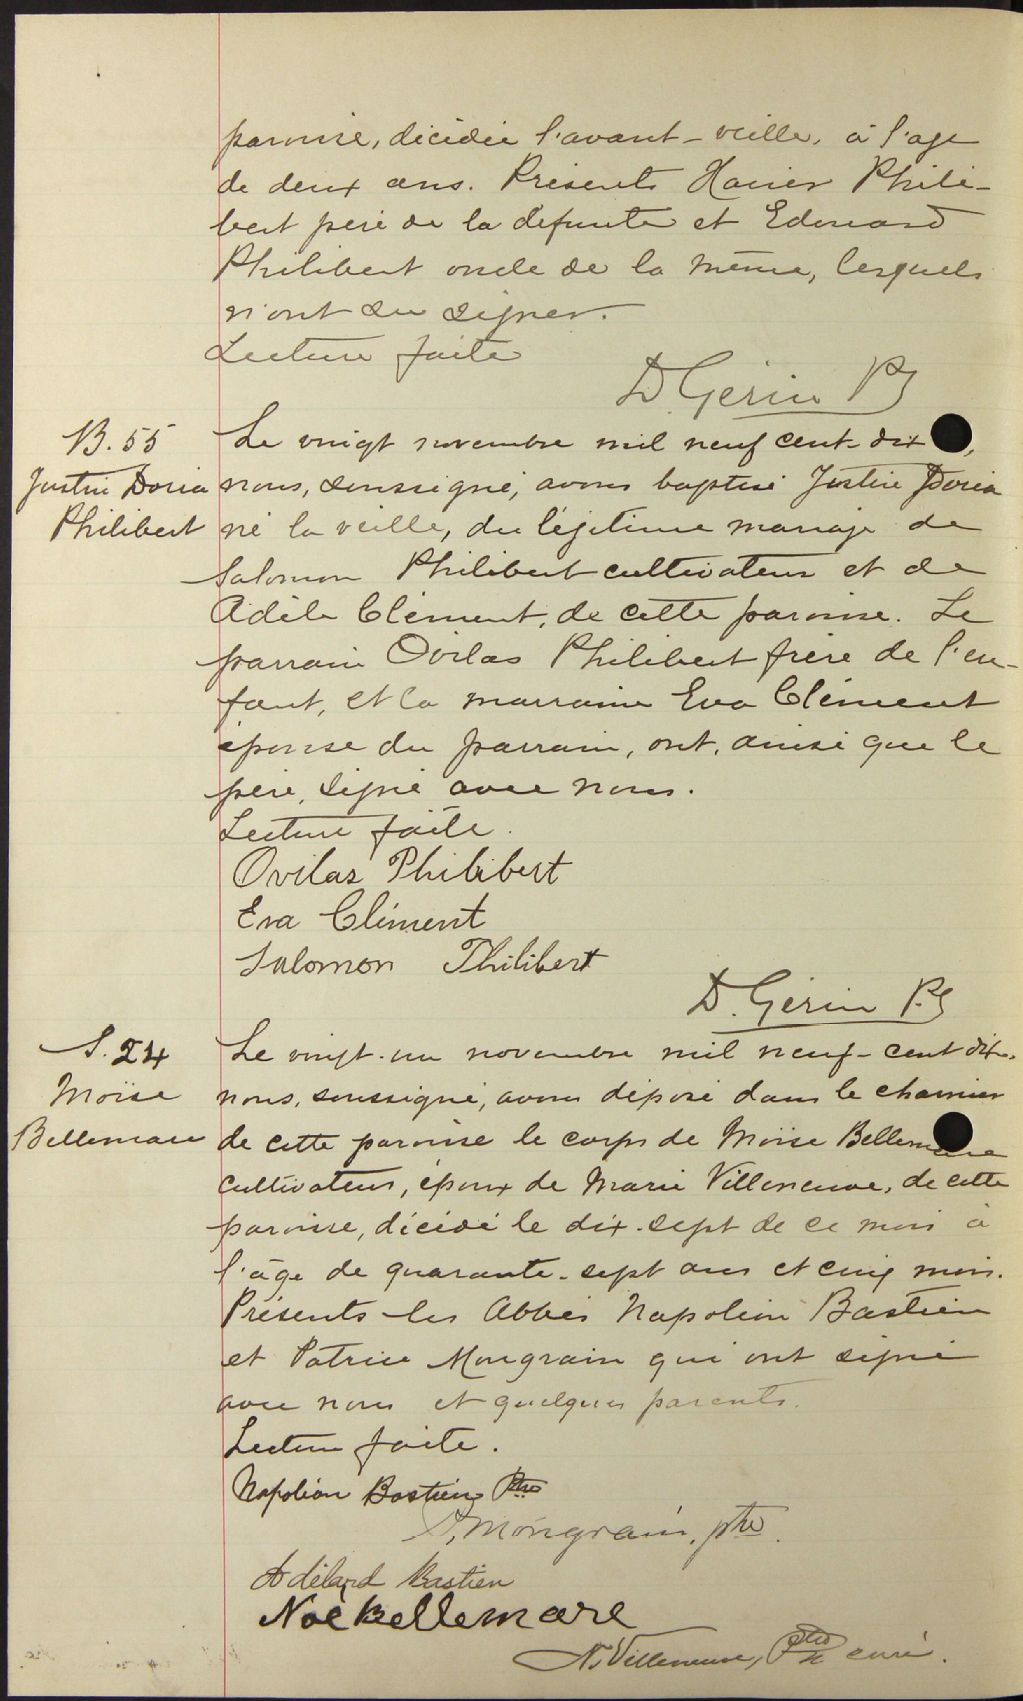 paroisse, décédée l'avant-veille, à l'age
de deux ans. Présents Xavier Phili-
bert père de la défunte et Edouard
Philibert oncle de la même, lesquels
n'ont su signer.
Lecture faite
D. Gérin P
B. 55
Justin Doria
Philibert
Le vingt novembre mil neuf cent-dix,
nous, soussigné, avons baptisé Justin Doria
né la veille, du légitime mariage de
Salomon Philibert cultivateur et de
Adèle Clément, de cette paroisse. Le
parrain Ovilas Philibert frère de l'en-
fant, et la marraine Eva Clément
épouse du parrain, ont, ainsi que le
père, signé avec nous.
Lecture faite.
Ovilas Philibert
Eva Clément
Salomon Philibert
D. Gérin
S. 24
Moïse
Bellemare
Le vingt-un novembre mil neuf-cent dix,
nous, soussigné, avons déposé dans le charnier
de cette paroisse le corps de Moïse Bellemare
cultivateur, époux de Marie Villeneuve, de cette
paroisse, décédé le dix-sept de ce mois à
l'âge de quarante-sept ans et cinq mois.
Présents les Abbés Napoléon Bastien
et Patrice Mongrain qui ont signé
avec nous et quelques parents.
Lecture faite.
Napoléon Bastien Ptre
P. Mongrain, ptre.
Adélard Bastien
Noé Bellemare
N. Villeneuve, Ptre curé.